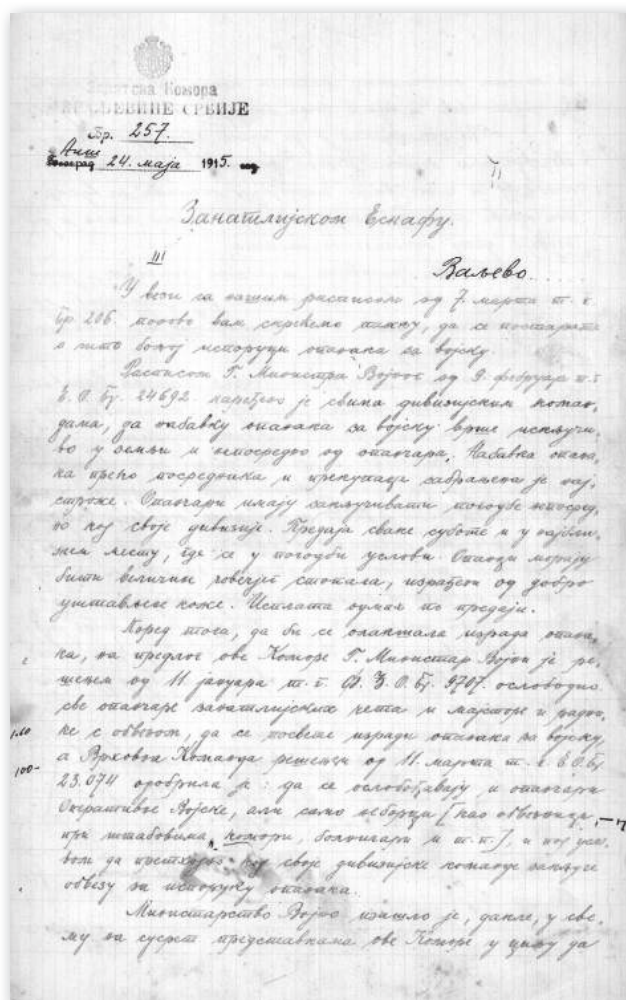 Занатска Комора
КРАЉЕВИНЕ СРБИЈЕ
Бр. 257.
Ниш
Београд 24. маја 1915. год
Занатлијском Еснафу.
III
Ваљево
У вези са нашим расписом од 7. марта т. г.
Бр 206. поново вам скрећемо пажњу, да се постарате
о што бољој испоруци опанака за војску.
Расписом Г. Министра Војног од 9. фебруара т. г.
Е. О. Бр. 24692. наређено је свима дивизијским коман-
дама, да набавку опанака за војску врше искључи-
во у земљи и непосредно од опанчара. Набавка опана-
ка преко посредника и прекупаца забрањена је нај-
строже. Опанчари имају закључивати погодбе непосред-
но код своје дивизије. Предаја сваке суботе и у најбли-
жем месту, где се у погодби услови. Опанци морају
бити величине човечјег стопала, израђени од добро
уштављене коже. Исплата одмах по предаји.
Поред тога, да би се олакшала израда опана-
ка, на предлог ове Коморе Г. Министар Војни је ре-
шењем од 11 јануара т. г. Ф. Ђ. О. Бр. 9707. ослободио
све опанчаре занатлијских чета и мајсторе и радни-
ке с обвезом, да се посвете изради опанака за војску,
а Врховна Команда решењем од 11. марта т. г. Е. О. Бр
23.074 одобрила је: да се ослобођавају и опанчари
Оперативне Војске, али само неборци [као обвезници
при штабовима, комори, болничари и т. п.], и под усло-
вом да претходно код своје дивизијске команде закључе
обвезу за испоруку опанака.
Министарство Војно изашло је, дакле, у све-
му на сусрет представкама ове Коморе у циљу да
1.60
100-